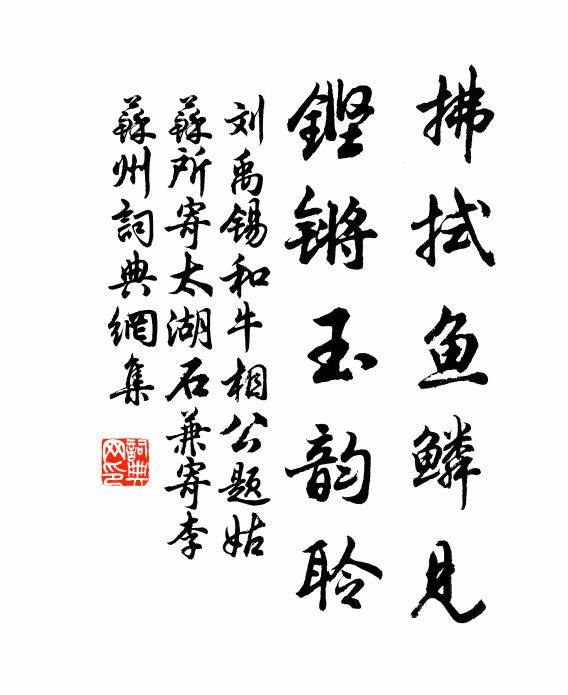 拂拭鱼鳞见
鏗锵玉韵聆
刘禹锡和牛相公题姑
蘇所寄太湖石兼寄李
蘇州詞典網集
詞典
网印